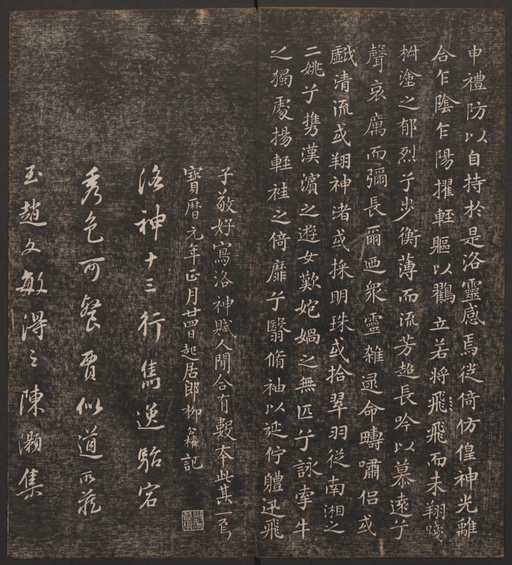 申禮防以自持於是洛靈感焉徙倚仿偟神光離
合乍陰乍陽擢輕軀以鸖立若將飛飛而未翔
塗之郁烈兮步衡薄而流芳超長吟以慕遠兮
聲哀厲而彌長爾迺衆靈雜遝命疇嘯侶或
戲清流或翔神渚或採明珠或拾翠羽從南湘之
二姚兮攜漢濱之遊女歎媧之無匹兮詠牽牛
之獨處揚輕袿之倚靡兮翳脩袖以延佇體迅飛
子敬好寫洛神賦人間合有數本此其一焉
寶曆元年正月廿四日起居郎柳公權記
洛神十三行雋逸駘宕
秀色可餐賈似道所藏
玉趙文敏得之陳灝集